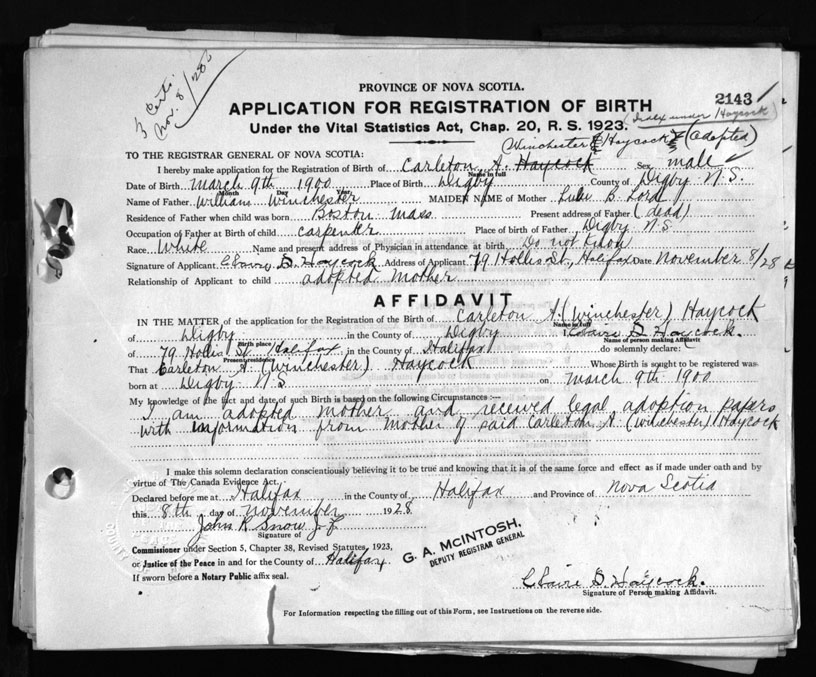 3 Certs.
Nov. 8/28
PROVINCE OF NOVA SCOTIA.
2143
APPLICATION FOR REGISTRATION OF BIRTH
(Index under Haycock)
Under the Vital Statistics Act, Chap. 20, R. S. 1923.
Winchester Haycock (adopted)
TO THE REGISTRAR GENERAL OF NOVA SCOTIA:
I hereby make application for the Registration of Birth of Carleton A. Haycock Sex male
Name in full
Date of Birth March 9th 1900 Place of Birth Digby County of Digby N.S.
Month Day Year
Name of Father William Winchester MAIDEN NAME of Mother Lulu B. Lord
Residence of Father when child was born Boston Mass. Present address of Father (dead)
Occupation of Father at Birth of child carpenter Place of birth of Father Digby N.S.
Race White Name and present address of Physician in attendance at birth Do not know
Signature of Applicant Claire D. Haycock Address of Applicant 79 Hollis St., Halifax Date November 8/28
Relationship of Applicant to child adopted mother
AFFIDAVIT
IN THE MATTER of the application for the Registration of the Birth of Carleton A. (Winchester) Haycock
Name in full
of Digby in the County of Digby I, Claire D. Haycock.
Birth place Name of person making Affidavit
of 79 Hollis St. Halifax in the County of Halifax do solemnly declare:
Present residence
That Carleton A. (Winchester) Haycock Whose Birth is sought to be registered was
born at Digby N.S. on March 9th 1900
My knowledge of the fact and date of such Birth is based on the following Circumstances:—
I am adopted mother and received legal adoption papers
with information from mother of said Carleton A. (Winchester) Haycock
I make this solemn declaration conscientiously believing it to be true and knowing that it is of the same force and effect as if made under oath and by
virtue of The Canada Evidence Act.
Declared before me at Halifax in the County of Halifax and Province of Nova Scotia
this 8th day of November 1928
John R. Snow J.P.
Signature of
Commissioner under Section 5, Chapter 38, Revised Statutes, 1923,
or Justice of the Peace in and for the County of Halifax
If sworn before a Notary Public affix seal.
G. A. McINTOSH,
DEPUTY REGISTRAR GENERAL
Claire D. Haycock.
Signature of Person making Affidavit.
For Information respecting the filling out of this Form, see Instructions on the reverse side.